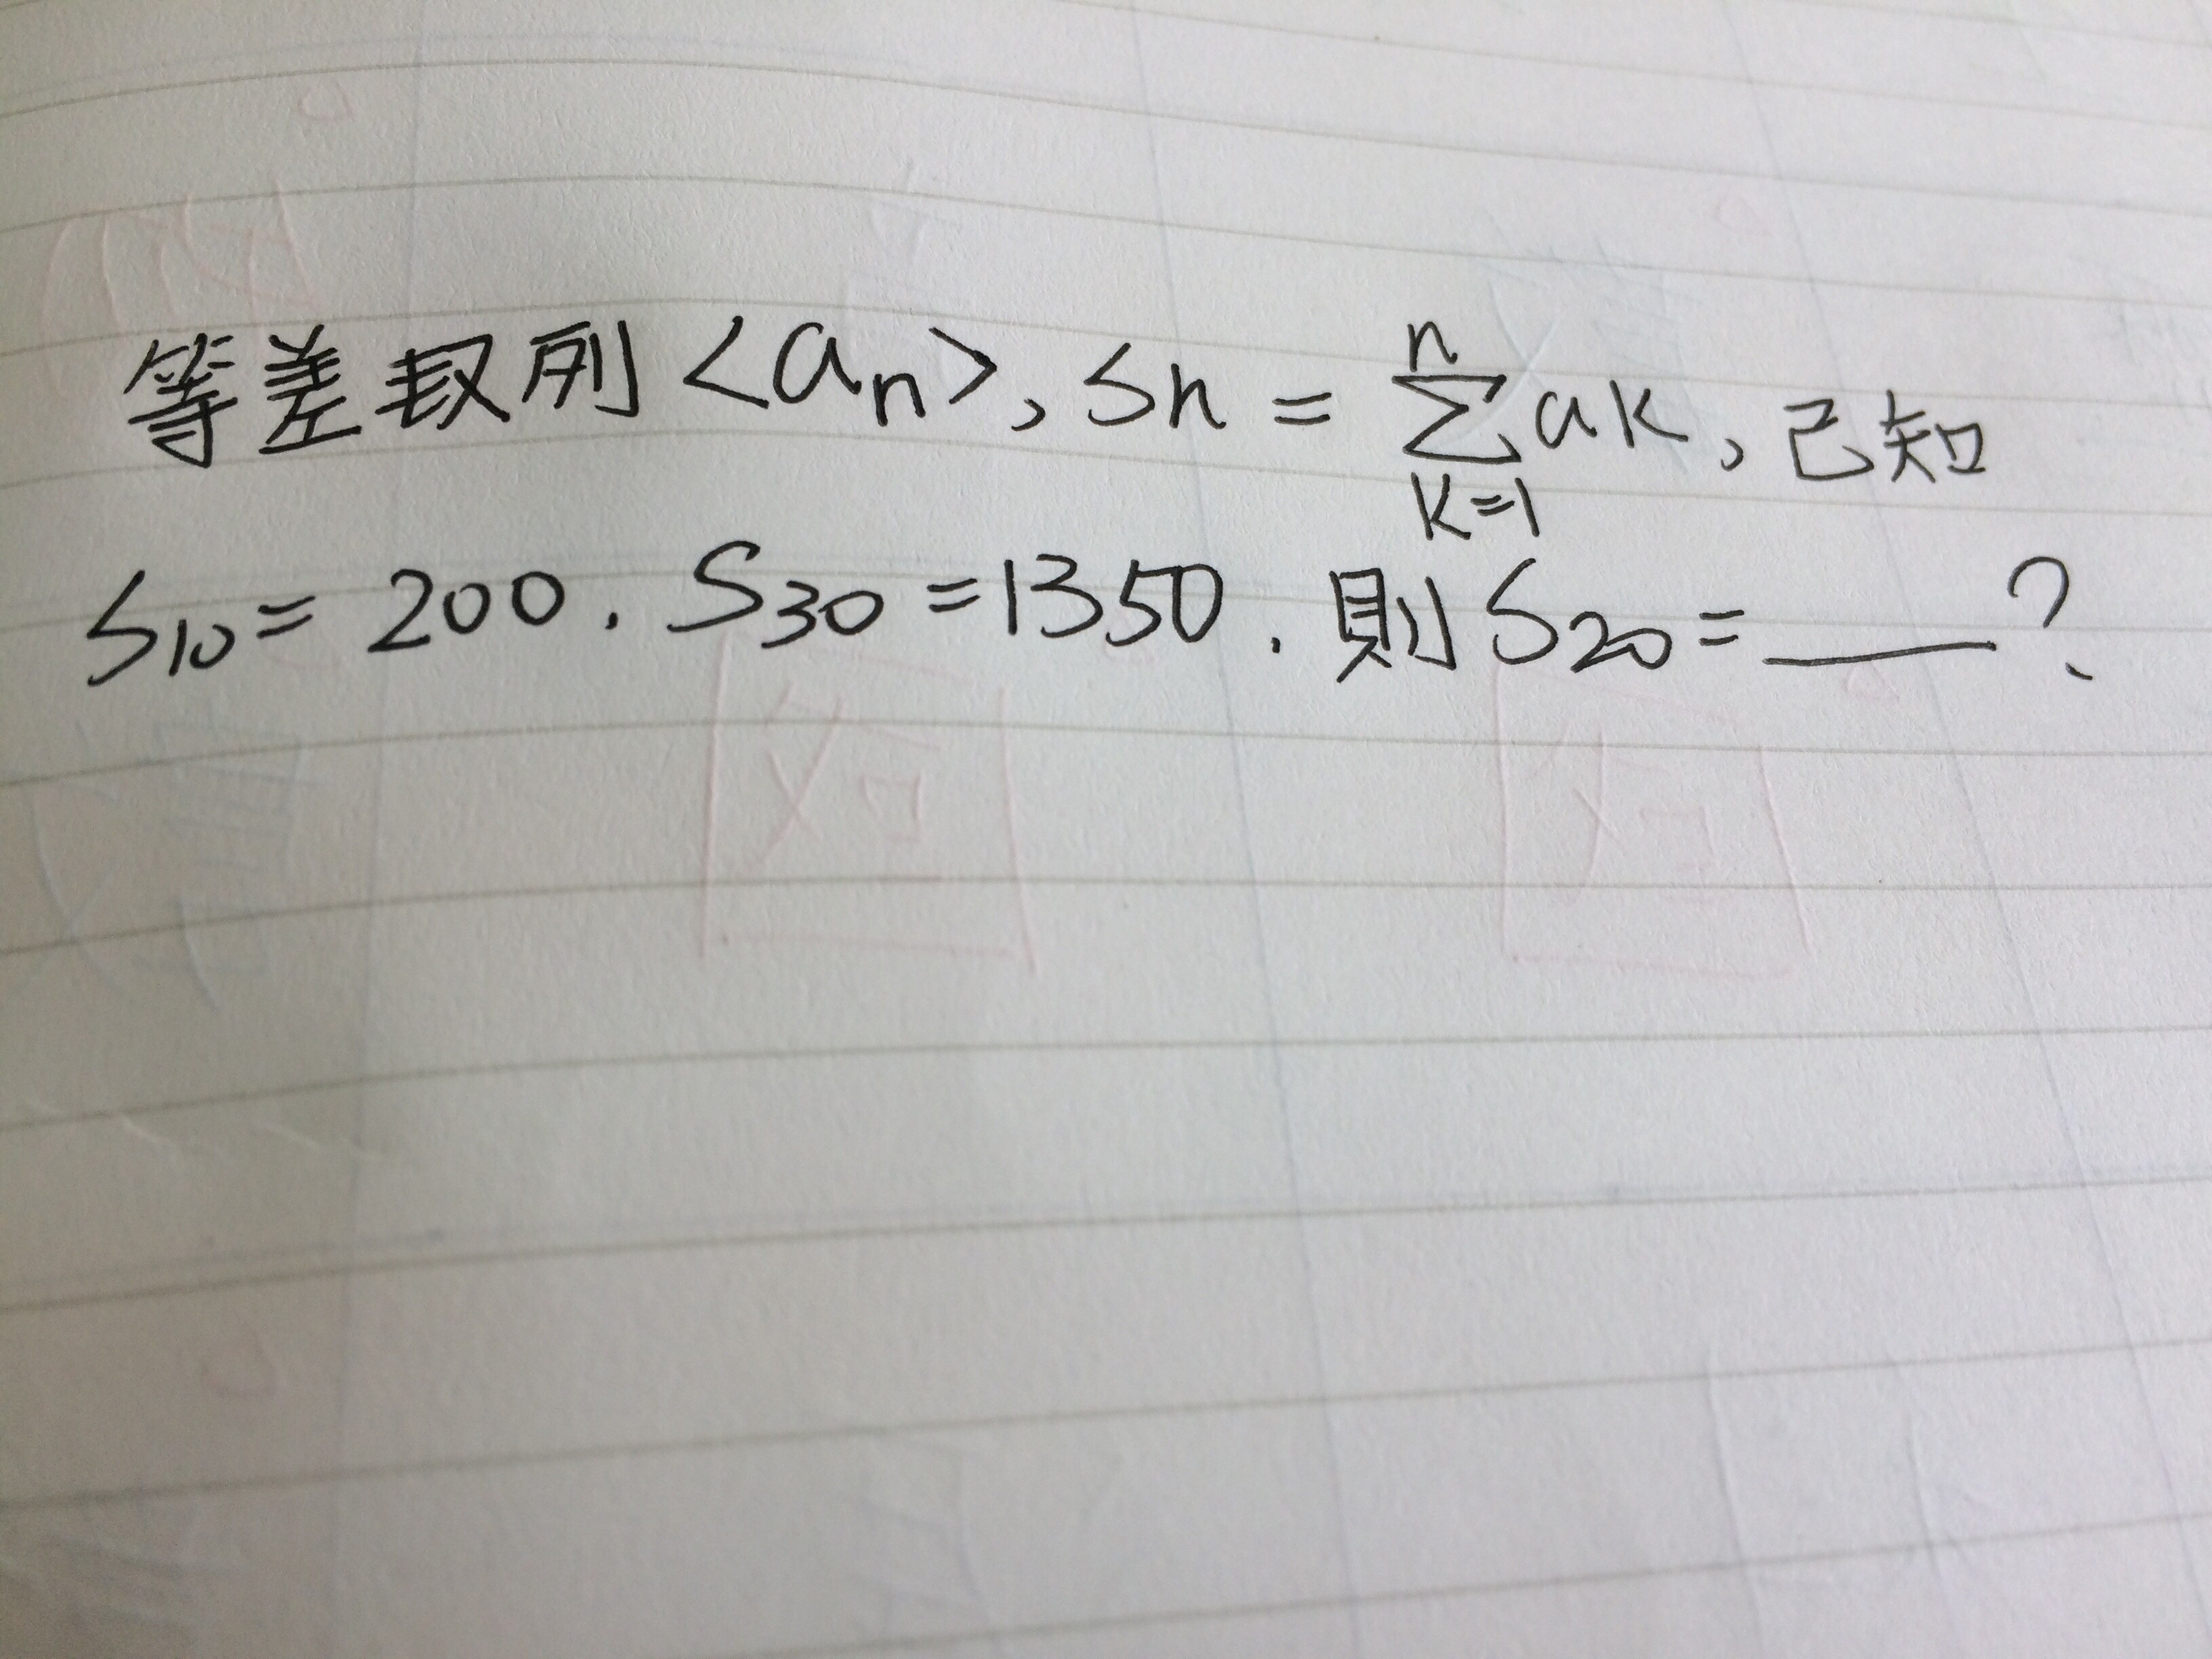 等差数列<an>, Sn = n∑k=1 ak, 己知
S10 = 200. S30 = 1350. 則 S20 = ___?